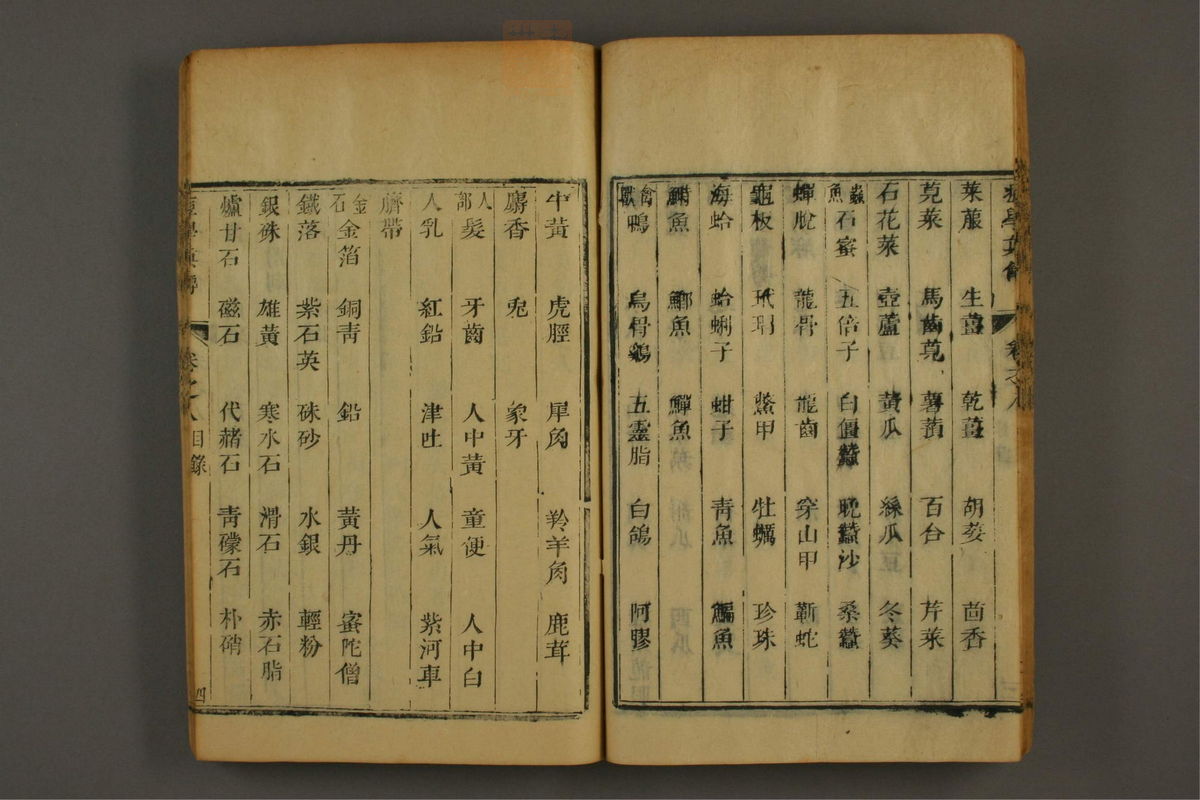 萊菔 生薑 乾薑 胡荽 茴香
莧菜 馬齒莧 薯蕷 百合 芹菜
石花菜 壺蘆 黃瓜 絲瓜 冬葵
蟲魚 石蜜 五倍子 白僵蠶 晚蠶沙 桑蠶
蟬脫 龍骨 龍齒 穿山甲 蘄蛇
龜板 玳瑁 鱉甲 牡蠣 珍珠
海蛤 蛤蜊子 蚶子 青魚 鯿魚
鯽魚 魚 鱓魚
禽獸 鴨 烏骨鷄 五靈脂 白鴿 阿膠
牛黃 虎脛 犀角 羚羊角 鹿茸
麝香 兎 象牙
人部 髮 牙齒 人中黃 童便 人中白
人乳 紅鉛 津吐 人氣 紫河車
臍帶
金石 金箔 銅青 鉛 黃丹 蜜陀僧
鐵落 紫石英 硃砂 水銀 輕粉
銀硃 雄黃 寒水石 滑石 赤石脂
爐甘石 磁石 代赭石 青礞石 朴硝
卷之八 目錄 四